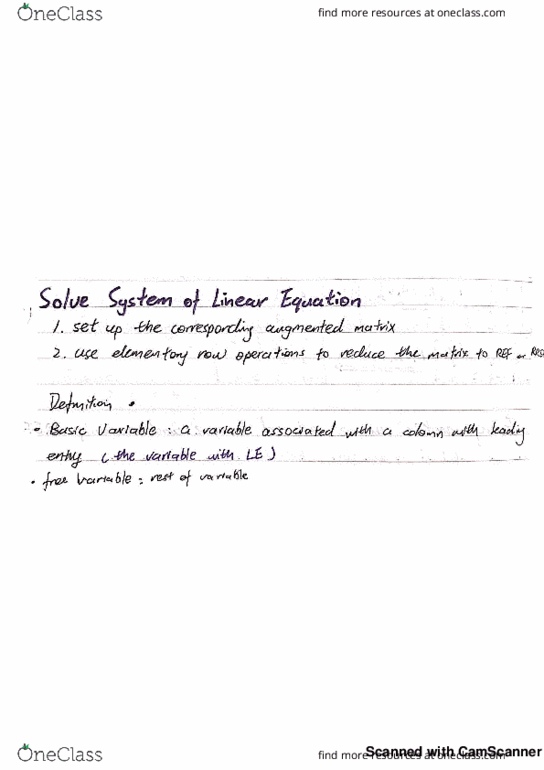 OneClass
find more resources at oneclass.com
Solve System of Linear Equation
1. set up the corresponding augmented matrix
2. use elementary row operations to reduce the matrix to REF or
Definition
- Basic Variable : a variable associated with a column with leading
entry ( the variable with LE )
• free variable : rest of variable
OneClass
find more resources at oneclass.com
Scanned with CamScanner